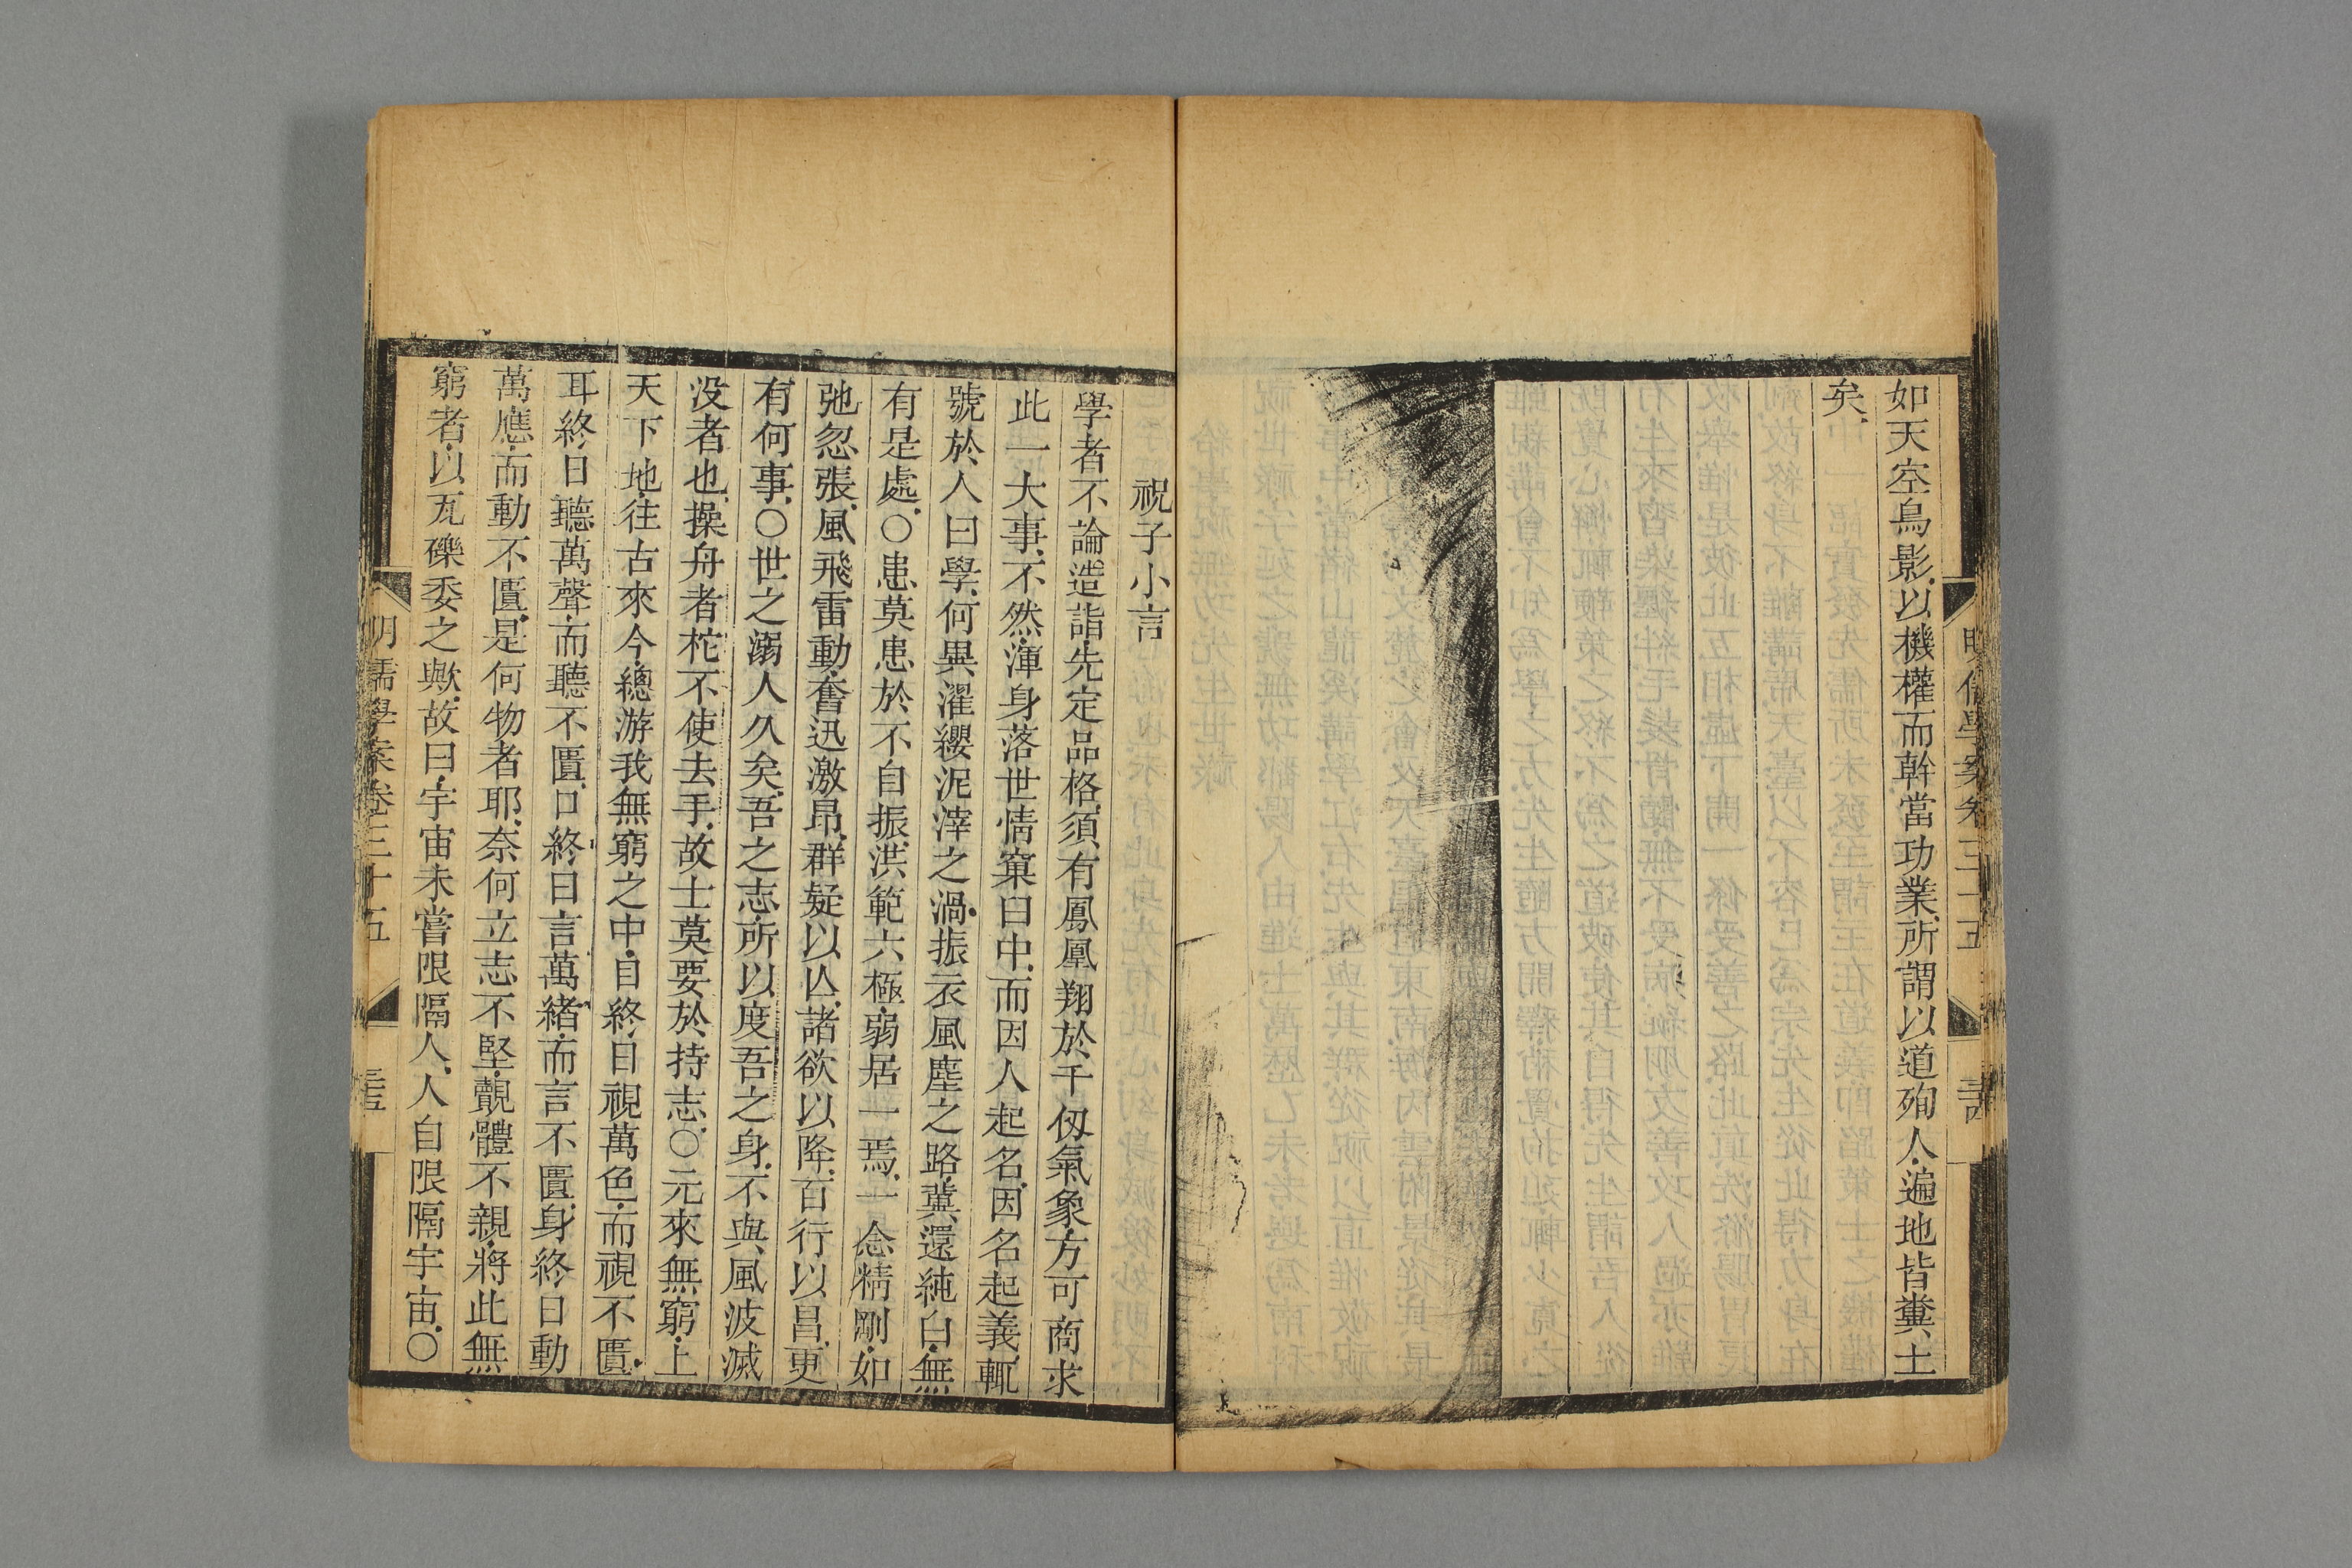 如天空鳥影以機權而幹當功業所謂以道殉人遍地皆糞土
矣
明儒學案卷三十五
祝子小言
學者不論造詣先定品格須有鳳凰翔於千仞氣象方可商求
此一大事不然渾身落世情窠臼中而因人起名因名起義輒
號於人曰學何異濯纓泥滓之渦振衣風塵之路冀還純白無
有是處○患莫患於不自振洪範六極弱居一焉一念精剛如
弛忽張風飛雷動奮迅激昂群疑以亾諸欲以降百行以昌更
有何事○世之溺人久矣吾之志所以度吾之身不與風波滅
没者也操舟者柁不使去手故士莫要於持志○元來無窮上
天下地往古來今總游我無窮之中目終日視萬色而視不匱
耳終日聽萬聲而聽不匱口終日言萬緒而言不匱身終日動
萬應而動不匱是何物者耶奈何立志不堅覿體不親將此無
窮者以瓦礫委之歟故曰宇宙未嘗限隔人人自限隔宇宙○
明儒學案卷三十五